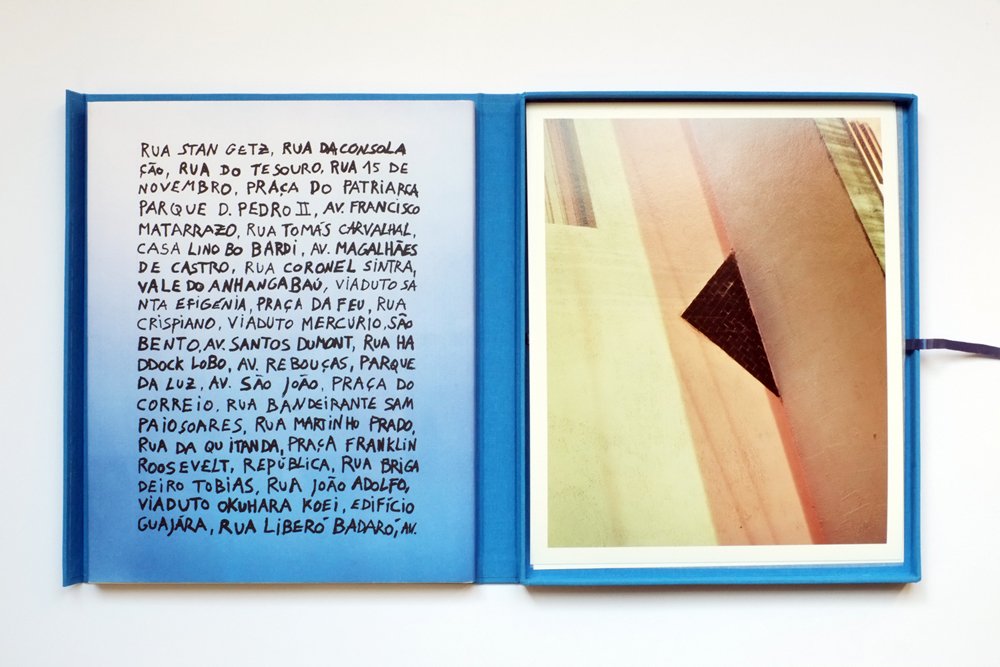 RUA STAN GETZ, RUA DA CONSOLA
ÇÃO, RUA DO TESOURO, RUA 15 DE
NOVEMBRO, PRAÇA DO PATRIARCA
PARQUE D. PEDRO II, AV. FRANCISCO
MATARRAZO, RUA TOMÁS CARVALHAL,
CASA LINO BO BARDI, AV. MAGALHÃES
DE CASTRO, RUA CORONEL SINTRA,
VALE DO ANHANGABAÚ, VIADUTO SA
NTA EFIGÊNIA, PRAÇA DA FEU, RUA
CRISPIANO, VIADUTO MERCÚRIO, SÃO
BENTO, AV. SANTOS DUMONT, RUA HA
DDOCK LOBO, AV. REBOUÇAS, PARQUE
DA LUZ, AV. SÃO JOÃO, PRAÇA DO
CORREIO, RUA BANDEIRANTE SAM
PAIO SOARES, RUA MARTINHO PRADO,
RUA DA QUITANDA, PRAÇA FRANKLIN
ROOSEVELT, REPÚBLICA, RUA BRIGA
DEIRO TOBIAS, RUA JOÃO ADOLFO,
VIADUTO OKUHARA KOEI, EDIFÍCIO
GUAJÁRA, RUA LIBERÓ BADARÓ, AV.